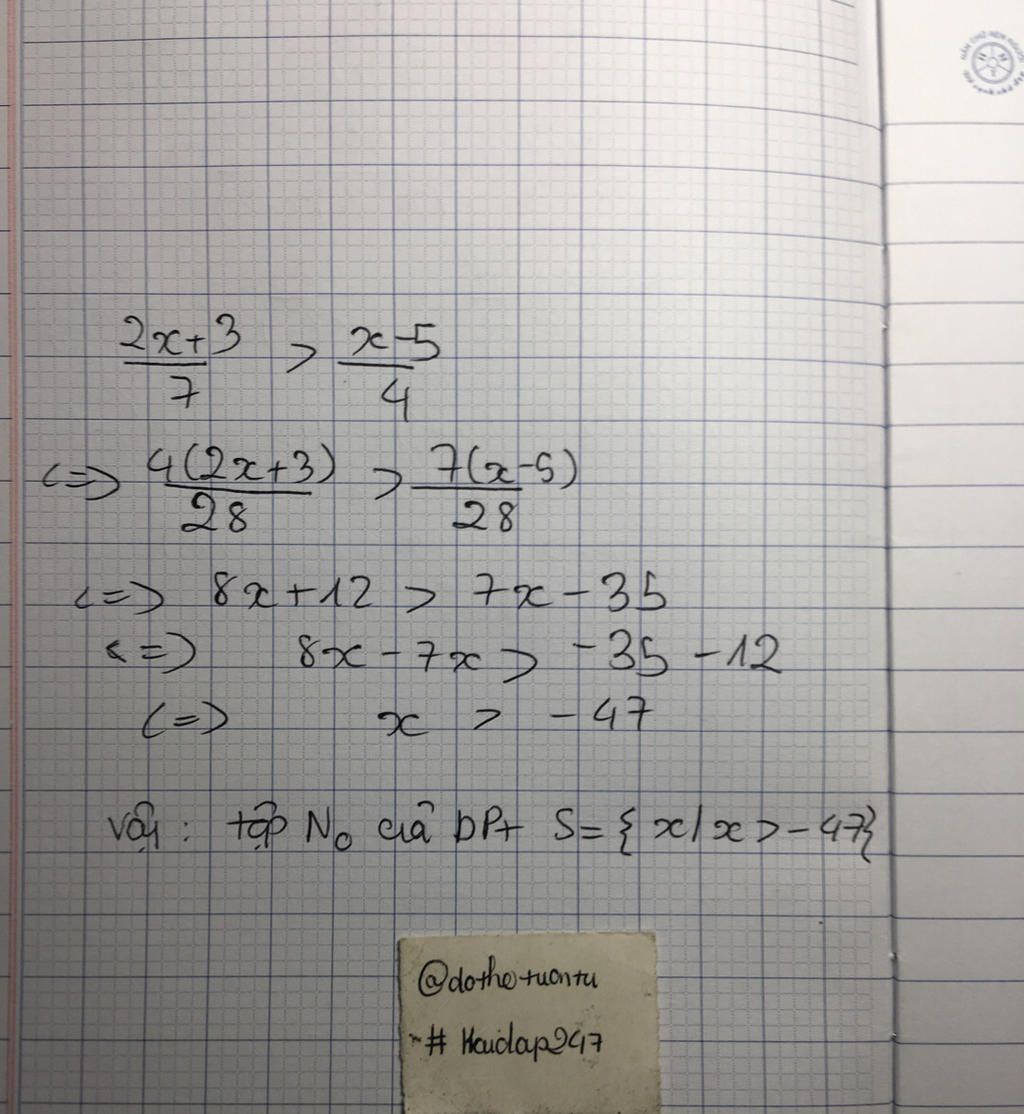 2x+3 / 7 > x-5 / 4
<=> 4(2x+3) / 28 > 7(x-5) / 28
<=> 8x+12 > 7x-35
<=> 8x-7x > -35-12
<=> x > -47
Vậy: tập No của bpt S={x/x>-47}
@dothetuantu
# Hoidap247